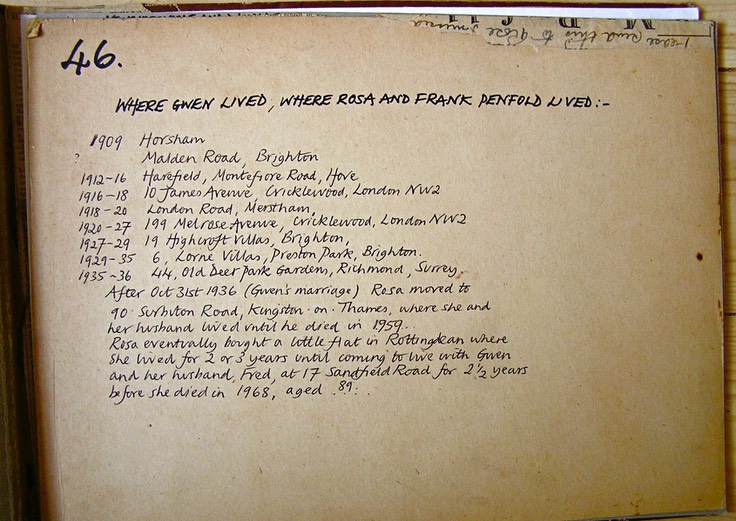 Please send this to
46.
WHERE GWEN LIVED, WHERE ROSA AND FRANK PENFOLD LIVED:-
1909 Horsham
? Malden Road, Brighton
1912-16 Harefield, Montefiore Road, Hove
1916-18 10 James Avenue, Cricklewood, London NW2
1918-20 London Road, Merstham,
1920-27 199 Melrose Avenue, Cricklewood, London NW2
1927-29 19 Highcroft Villas, Brighton,
1929-35 6, Lorne Villas, Preston Park, Brighton.
1935-36 44, Old Deer Park Gardens, Richmond, Surrey.
After Oct 31st 1936 (Gwen's marriage) Rosa moved to
90 Surbiton Road, Kingston-on-Thames, where she and
her husband lived until he died in 1959..
Rosa eventually bought a little flat in Rottingdean where
she lived for 2 or 3 years until coming to live with Gwen
and her husband, Fred, at 17 Sandfield Road for 2½ years
before she died in 1968, aged .89. .